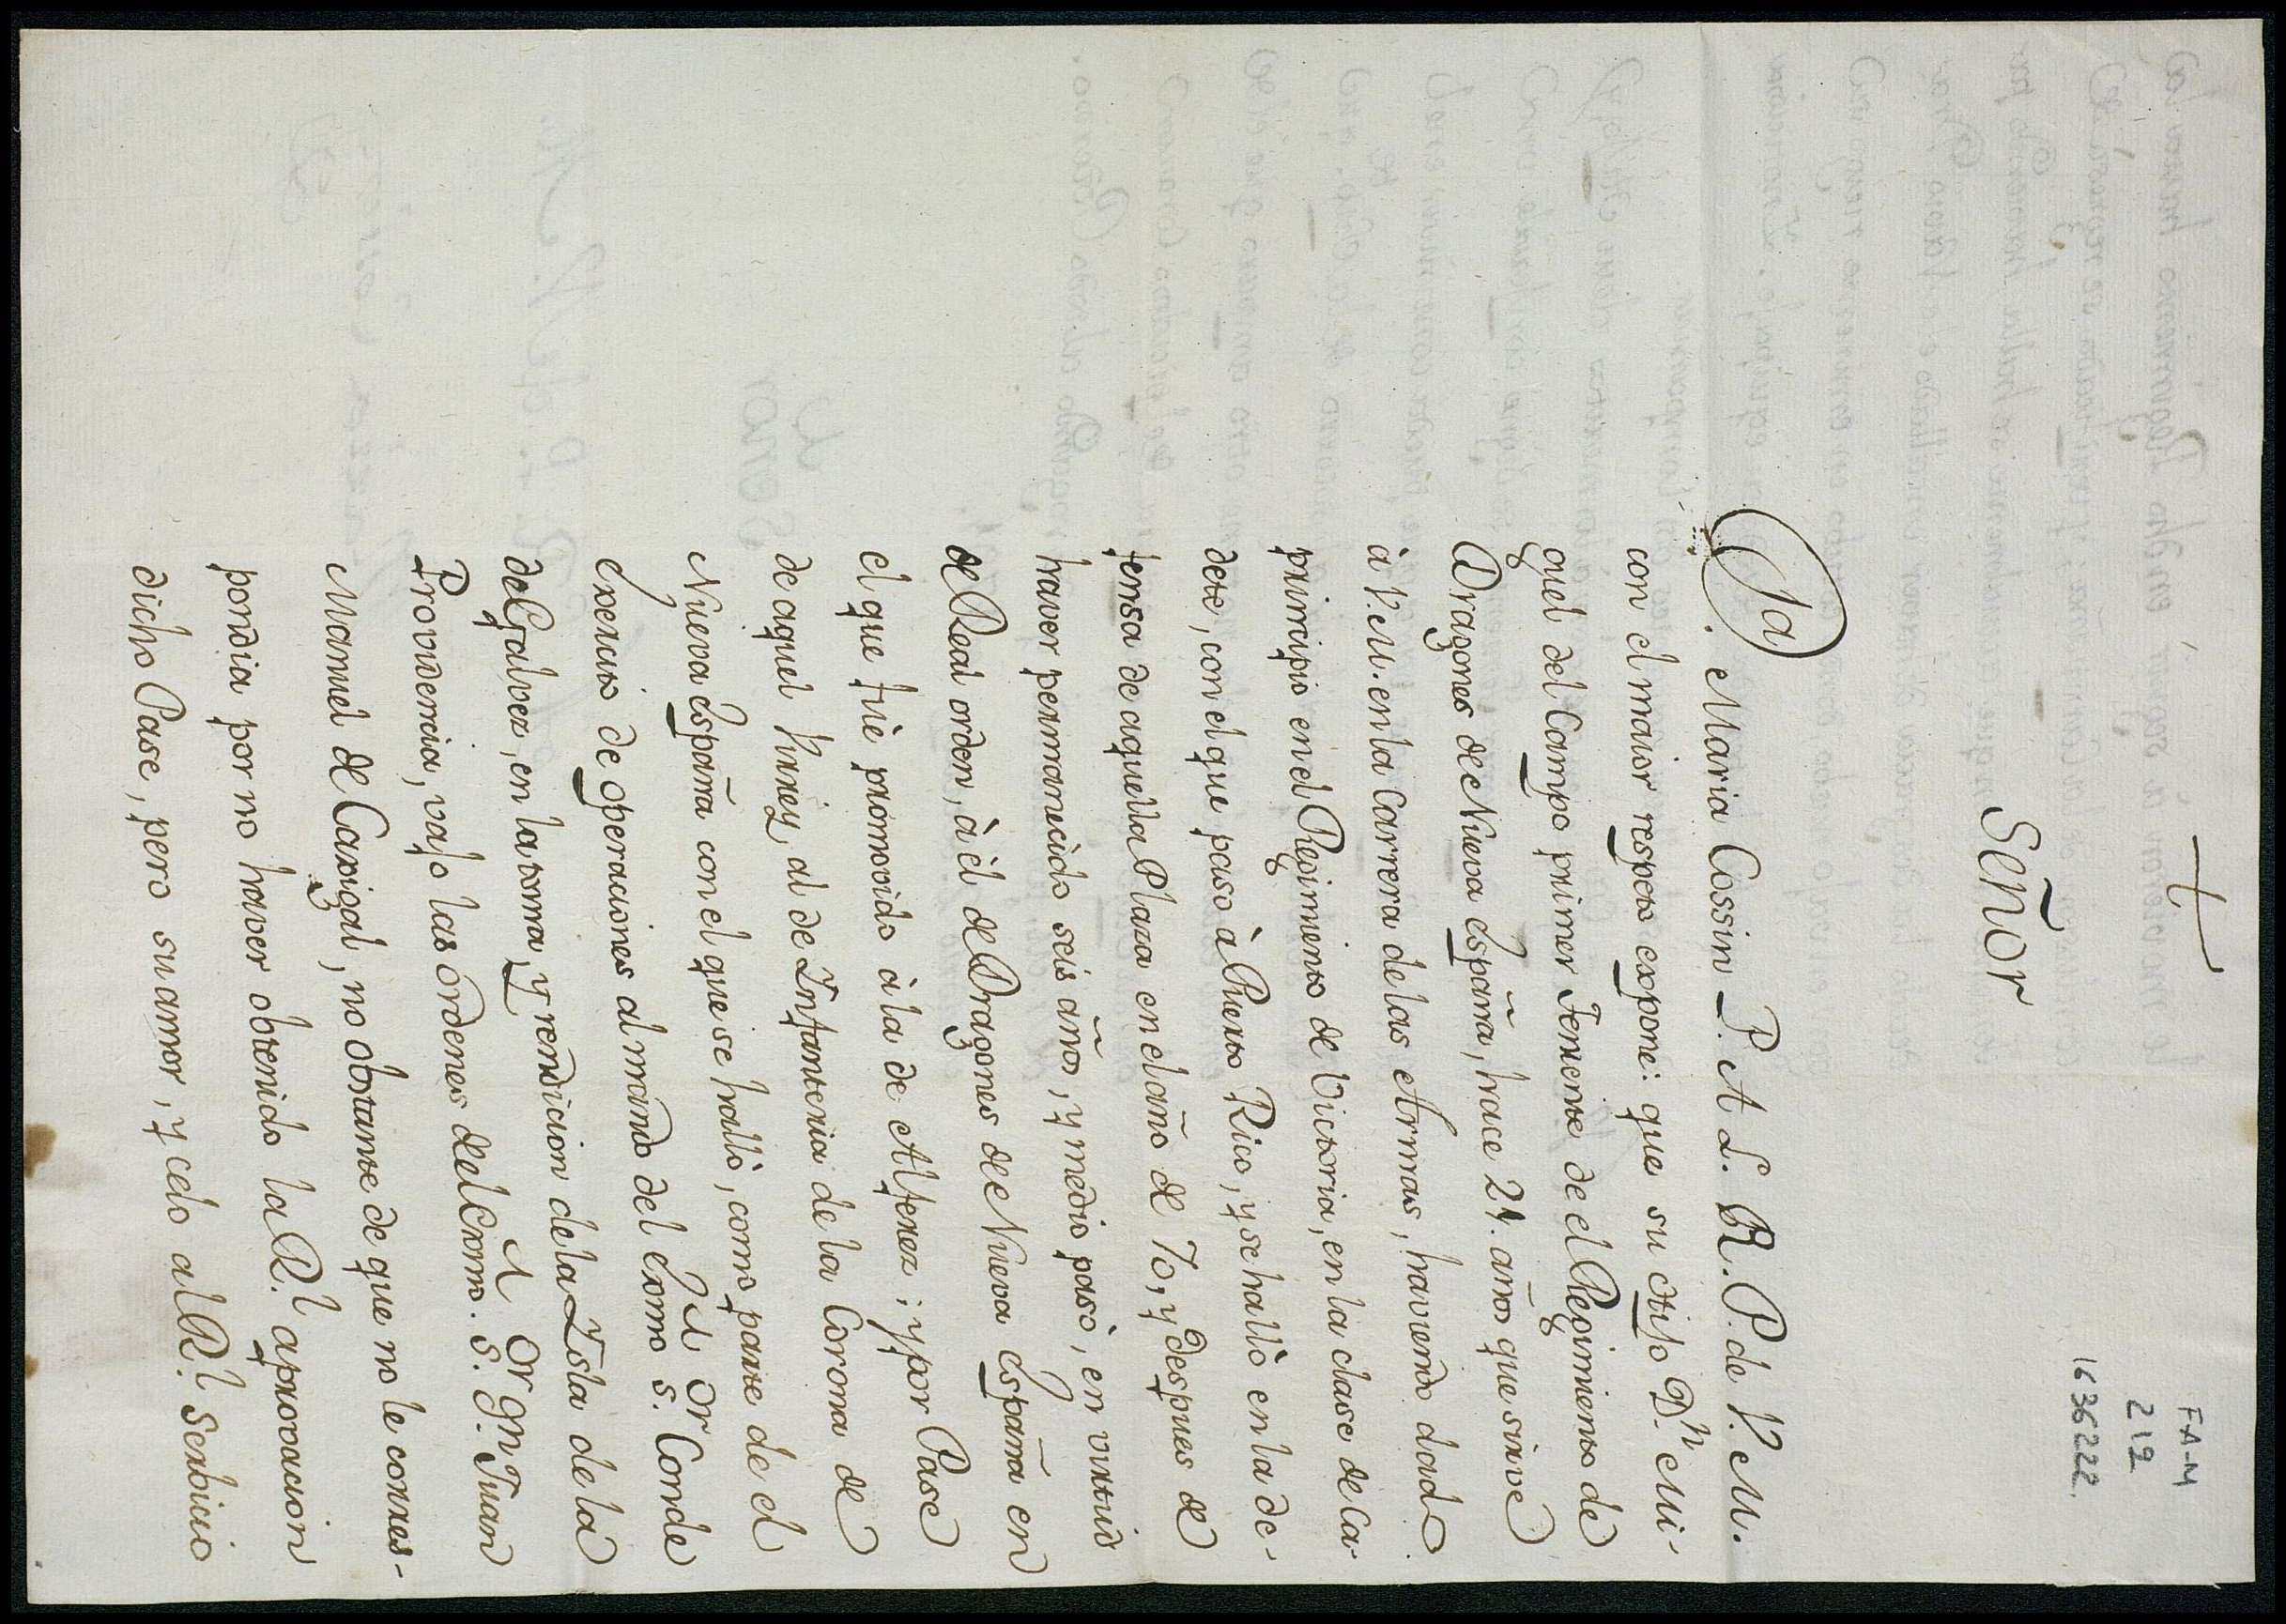 +
FA-M
219
1636222
Señor
D.ª Maria Cossin P. A L. R. P. de V. M.
con el maior respeto expone: que su Hijo D.n Mi-
guel del Campo primer Teniente de el Regimiento de
Dragones de Nueva España, hace 24. años que sirve
à V. M. en la Carrera de las Armas, haviendo dado
principio en el Regimiento de Victoria, en la clase de Ca-
dete, con el que paso à Puerto Rico, y se hallò en la de-
fensa de aquella Plaza en el año de 70, y despues de
haver permanecido seis años, y medio pasò, en virtud
de Real orden, à èl de Dragones de Nueva España en
el que fuè promovido à la de Alferez; y por Pase
de aquel Virrey, al de Infanteria de la Corona de
Nueva España con el que se hallò, como parte de el
Exercito de operaciones al mando del Exmo S.or Conde
de Galvez, en la toma, y rendicion de la Isla de la
Providencia, vajo las ordenes del Exmo. S.or D.n Juan
Manuel de Caxigal, no obstante de que no le corres-
pondia por no haver obtenido la R.l aprovacion
dicho Pase, pero su amor, y celo al R.l Serbicio